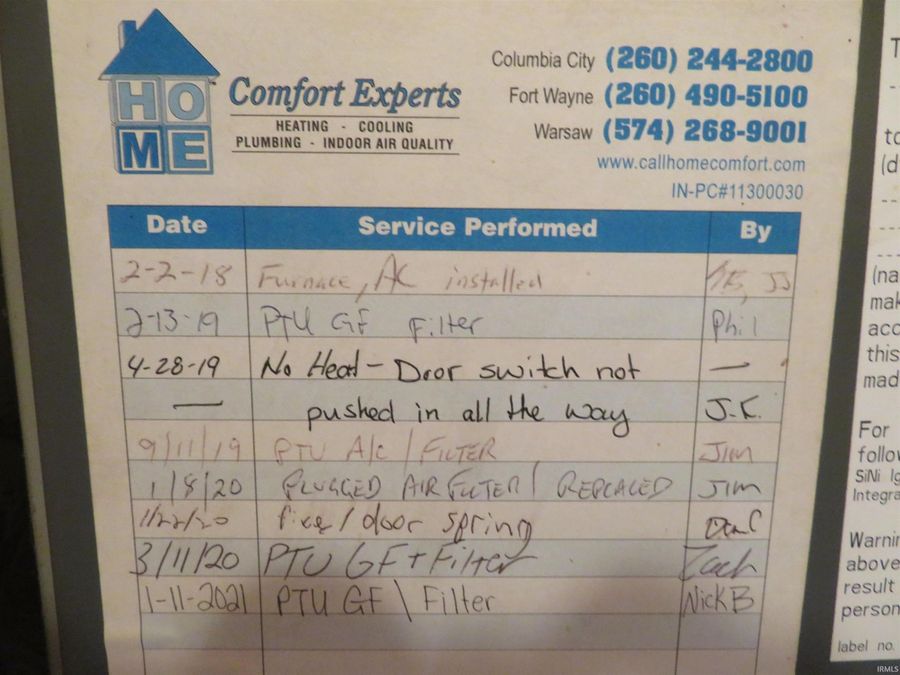 HOME
Comfort Experts
HEATING - COOLING
PLUMBING - INDOOR AIR QUALITY
Columbia City (260) 244-2800
Fort Wayne (260) 490-5100
Warsaw (574) 268-9001
www.callhomecomfort.com
IN-PC#11300030
Date Service Performed By
2-2-18 Furnace, AC installed JJ
2-13-19 PTU GF Filter Phil
4-28-19 No Heat - Door switch not —
— pushed in all the way J.K.
9/11/19 PTU A/C / FILTER Jim
1/8/20 PLUGGED AIR FILTER / REPLACED Jim
1/22/20 door spring
3/11/20 PTU GF + Filter Zach
1-11-2021 PTU GF \ Filter Nick B
to
(d
(na
mak
acc
this
mad
For
follow
SiNi Ig
Integra
Warnin
above
result
person
label no.
IRMLS